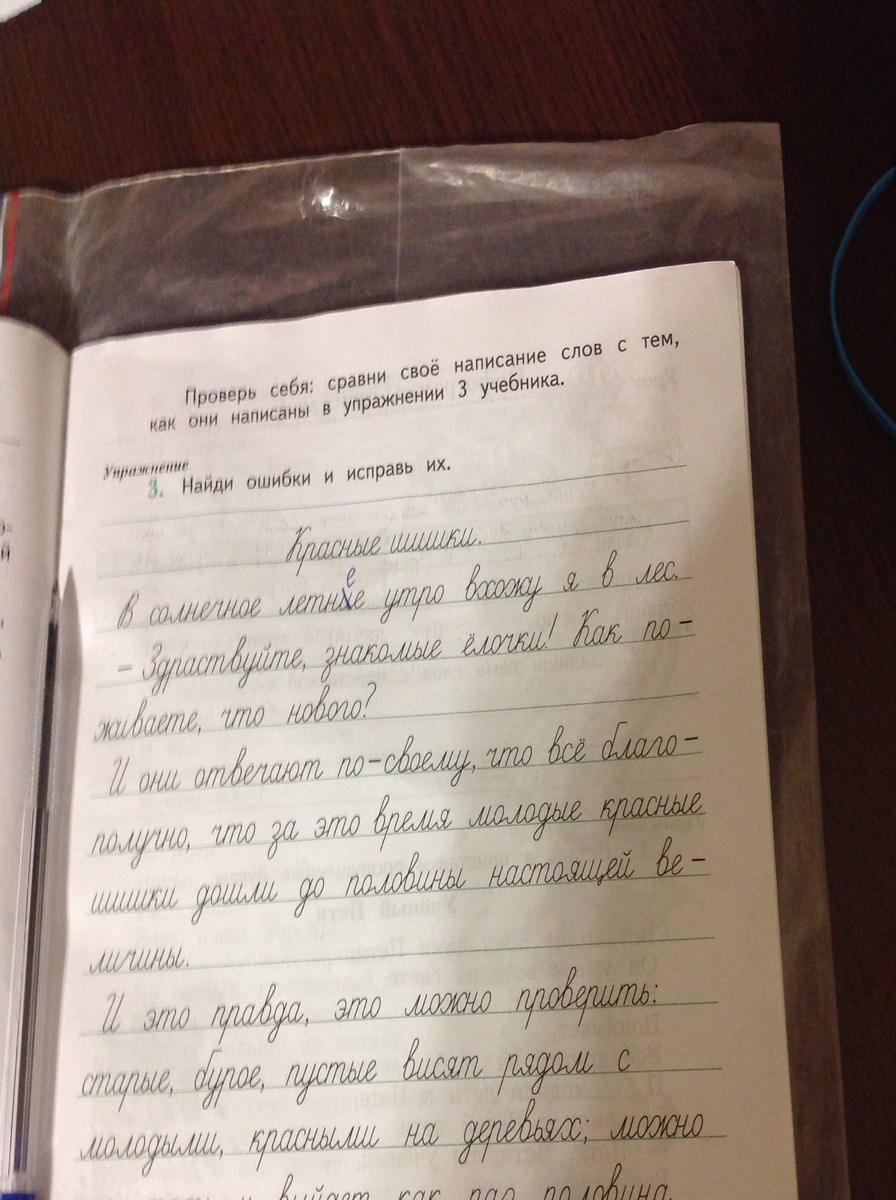 Проверь себя: сравни своё написание слов с тем,
как они написаны в упражнении 3 учебника.
Упражнение
3. Найди ошибки и исправь их.
Красные шишки.
е
В солнечное летние утро вхожу я в лес.
– Здраствуйте, знакомые ёлочки! Как по-
живаете, что нового?
И они отвечают по-своему, что всё благо-
получно, что за это время молодые красные
шишки дошли до половины настоящей ве-
личины.
И это правда, это можно проверить:
старые, бурое, пустые висят рядом с
молодыми, красными на деревьях; можно
как раз половина.